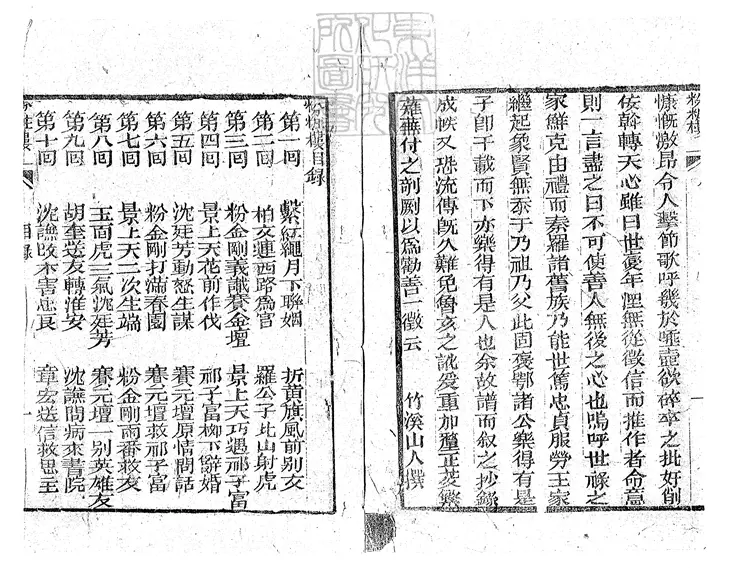 粉粧樓
慷慨激昂令人擊節歌呼幾於唾壺欲碎卒之批奸削
佞斡轉天心雖曰世褒年凐無從徵信而推作者命意
則一言盡之曰不可使善人無後之心也嗚呼世祿之
家鮮克由禮而秦羅諸舊族乃能世篤忠貞服勞王家
繼起象賢無忝于乃祖乃父此固褒鄂諸公樂得有是
子卽千載而下亦樂得有是人也余故譜而叙之抄錄
成帙又恐流傳旣久難免魯亥之訛爰重加釐正芟繁
薙蕪付之剞劂以爲勸善一徵云 竹溪山人撰
粉粧樓目錄
第一回 繫紅繩月下聯姻 折黃旗風前別友
第二回 柏文連西路爲官 羅公子北山射虎
第三回 粉金剛義識賽金壇 景上天巧遇祁子富
第四回 景上天花前作伐 祁子富柳下辭婚
第五回 沈廷芳動怒生謀 賽元壇原情問話
第六回 粉金剛打滿春園 賽元壇救祁子富
第七回 景上天二次生端 粉金剛兩番救友
第八回 玉面虎三氣沈廷芳 賽元壇一別英雄友
第九回 胡奎送友轉淮安 沈謙問病來書院
第十回 沈謙改本害忠良 章宏送信救恩主
粉粧樓 目錄 一
東洋文化研究所圖書